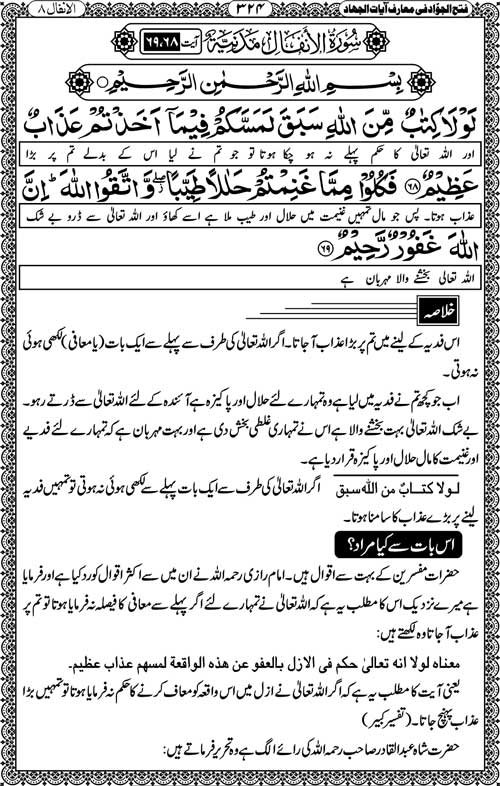 فتح الجوّاد فی معارف آیات الجهاد ۳۲۴ الانفال ۸
سُوْرَةُ الْاَنْفَالِ مَدَنِیَّةٌ آیت ۶۸، ۶۹
بِسْمِ اللهِ الرَّحْمٰنِ الرَّحِیْمِ
لَوْلَا كِتٰبٌ مِّنَ اللهِ سَبَقَ لَمَسَّكُمْ فِیْمَاۤ اَخَذْتُمْ عَذَابٌ
اور اللہ تعالیٰ کا حکم پہلے نہ ہو چکا ہوتا تو جو تم نے لیا اس کے بدلے تم پر بڑا
عَظِیْمٌ ﴿۶۸﴾ فَكُلُوْا مِمَّا غَنِمْتُمْ حَلٰلًا طَیِّبًا ۖ وَّاتَّقُوا اللهَ ؕ اِنَّ
عذاب ہوتا۔ پس جو مال تمہیں غنیمت میں حلال اور طیب ملا ہے اسے کھاؤ اور اللہ تعالیٰ سے ڈرو بے شک
اللهَ غَفُوْرٌ رَّحِیْمٌ ﴿۶۹﴾
اللہ تعالیٰ بخشنے والا مہربان ہے
خلاصہ
اس فدیہ کے لینے میں تم پر بڑا عذاب آجاتا۔ اگر اللہ تعالیٰ کی طرف سے پہلے سے ایک بات (یا معافی) لکھی ہوئی
نہ ہوتی۔
اب جو کچھ تم نے فدیہ میں لیا ہے وہ تمہارے لئے حلال اور پاکیزہ ہے آئندہ کے لئے اللہ تعالیٰ سے ڈرتے رہو۔
بے شک اللہ تعالیٰ بہت بخشنے والا ہے اس نے تمہاری غلطی بخش دی ہے اور بہت مہربان ہے کہ تمہارے لئے فدیے
اور غنیمت کا مال حلال اور پاکیزہ قرار دیا ہے۔
لولا کتابٌ من اللّٰہ سبق اگر اللہ تعالیٰ کی طرف سے ایک بات پہلے سے لکھی ہوئی نہ ہوتی تو تمہیں فدیہ
لینے پر بڑے عذاب کا سامنا ہوتا۔
اس بات سے کیا مراد؟
حضرات مفسرین کے بہت سے اقوال ہیں۔ امام رازی رحمہ اللہ نے ان میں سے اکثر اقوال کو رد کیا ہے اور فرمایا
ہے میرے نزدیک اس کا مطلب یہ ہے کہ اللہ تعالیٰ نے تمہارے لئے اگر پہلے سے معافی کا فیصلہ نہ فرمایا ہوتا تو تم پر
عذاب آجاتا وہ لکھتے ہیں:
معناه لولا انه تعالیٰ حکم فی الازل بالعفو عن هذه الواقعة لمسهم عذاب عظیم۔
یعنی آیت کا مطلب یہ ہے کہ اگر اللہ تعالیٰ نے ازل میں اس واقعہ کو معاف کرنے کا حکم نہ فرمایا ہوتا تو تمہیں بڑا
عذاب پہنچ جاتا۔ (تفسیر کبیر)
حضرت شاہ عبدالقادر صاحب رحمہ اللہ کی رائے الگ ہے وہ تحریر فرماتے ہیں: